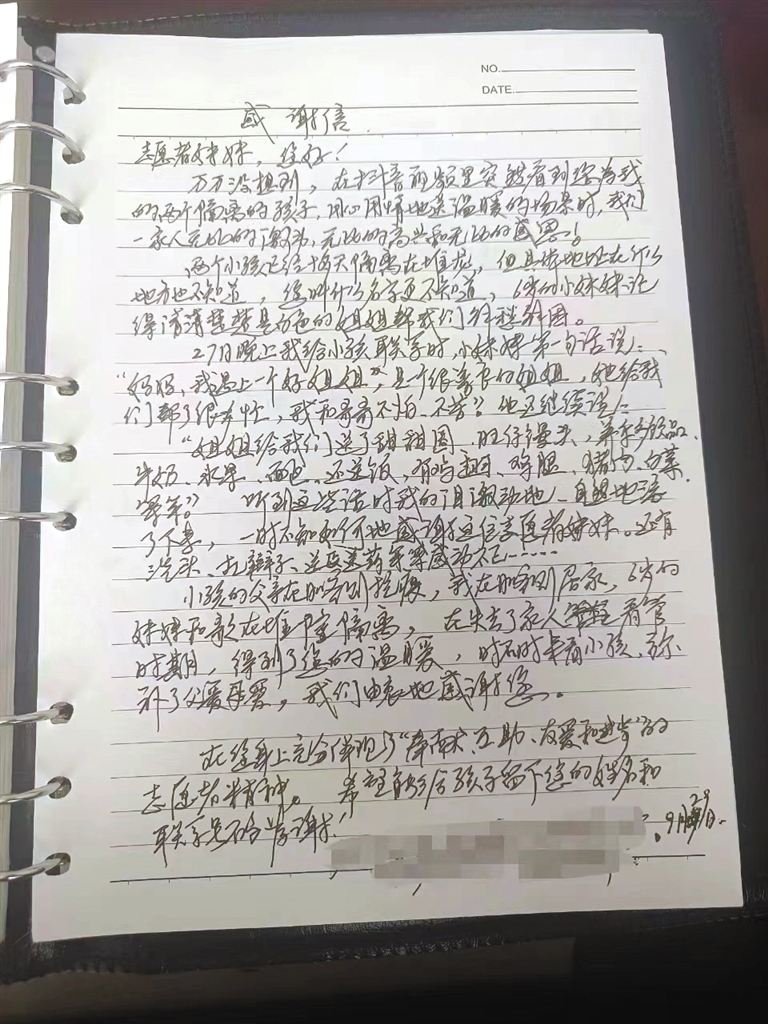 NO.
DATE.
感 谢 信
志愿者妹妹，您好！
万万没想到，在抖音视频里突然看到你为我
的两个隔离的孩子，用心用情地送温暖的场景时，我们
一家人无比的激动，无比的高兴和无比的感恩！
两个小孩已经十多天隔离在堆龙，但具体地址在什么
地方也不知道，您叫什么名字更不知道，6岁的小妹妹记
得清清楚楚是的姐姐帮我们
27日晚上我给小孩联系时，小妹妹第一句话说：
“妈妈，我遇上一个好姐姐”，是一个很善良的姐姐，她给我
们帮了很多忙，我和哥哥不怕、不苦”。他又继续说：
“姐姐给我们送了甜甜圈、旺仔馒头、养乐多饮品、
牛奶、水果、面包、还送饭、有鸡翅、鸡腿、猪肉、白菜
等等。” 听到这些话时我的泪激动地、自豪地流
了下来，一时不知如何地感谢这位志愿者妹妹。还有
洗头、扎辫子、送医送药等等感动不已……
小孩的父亲在日喀则抗疫，我在日喀则居家，6岁的
妹妹和哥在堆龙隔离，在失去了家人看管
时期，得到了您的温暖，时不时来看小孩、弥
补了父爱母爱，我们由衷地感谢您。
在您身上充分体现了“奉献、互助、友爱和进步”的
志愿者精神。希望能给孩子留下您的姓名和
联系号 谢谢！
9月29日.